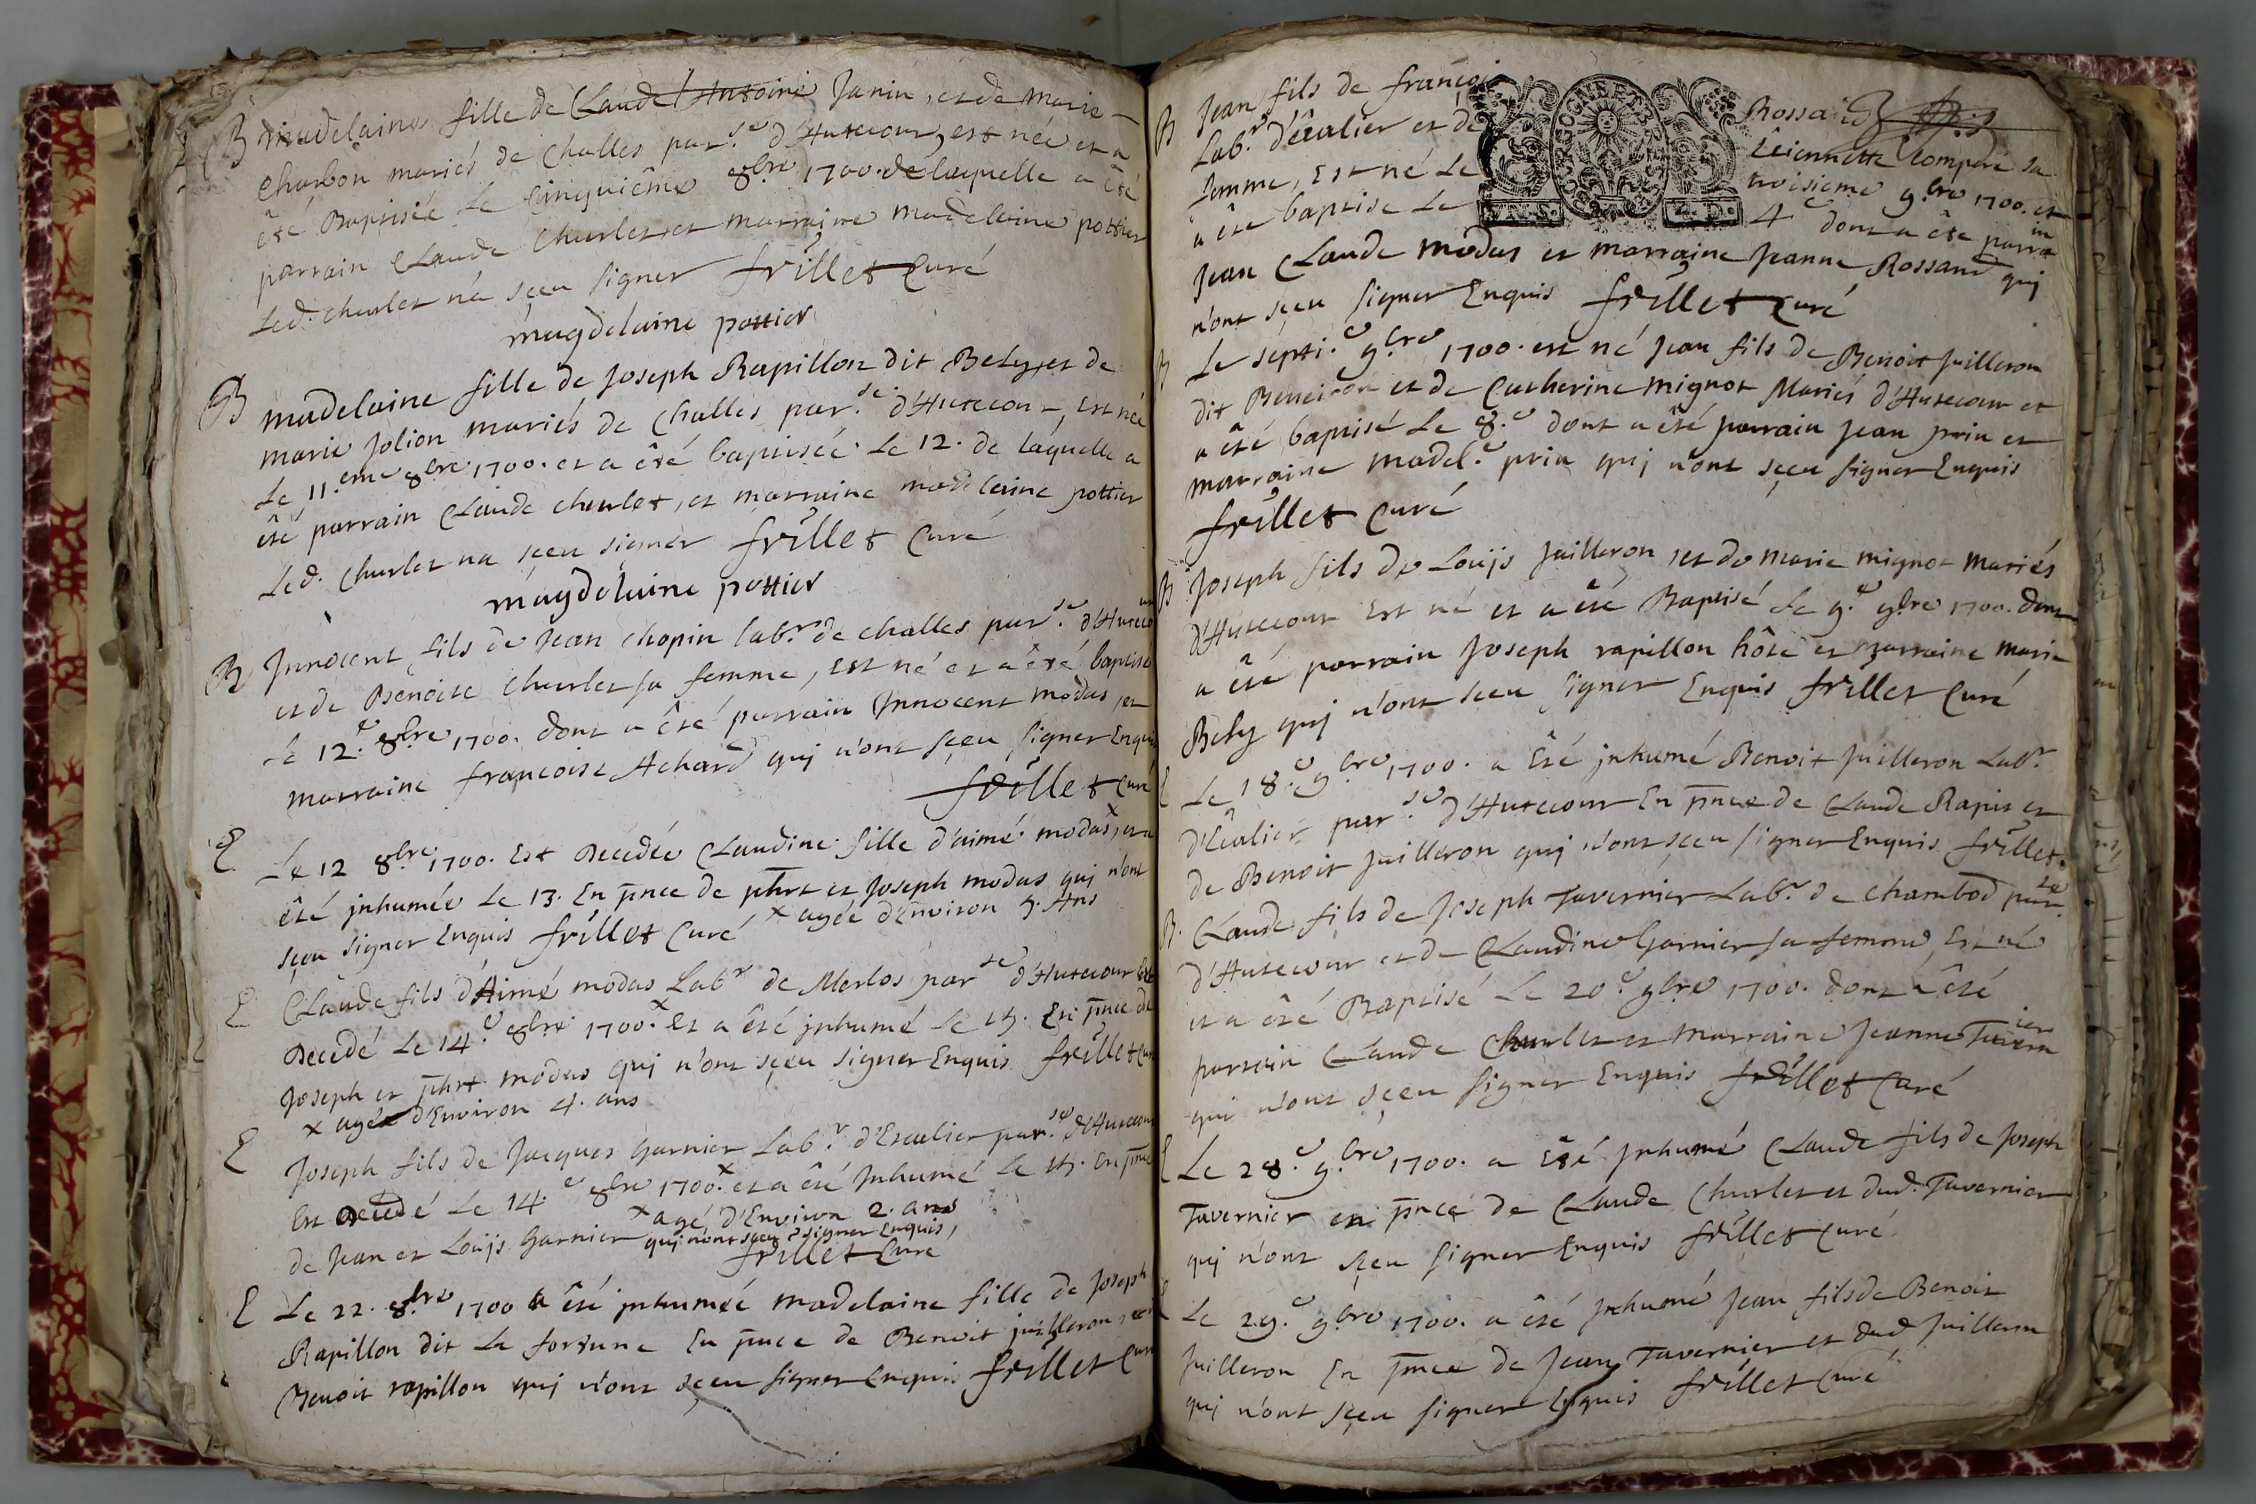 B madelaine fille de Claude Antoine Janin, et de Marie
Charbon mariés de Challes par.se d'Hutecour, est née et a
êté Baptisée Le Cinquiême 8bre 1700. de laquelle a êté
parrain Claude Churlet et marraine madelaine pottier
Led. Churlet n'a sçeu signer frillet Curé
magdelaine pottier
B madelaine fille de Joseph Rapillon dit Bely, et de
marie Jolion mariés de Challes par.se d'Hutecour Est née
Le 11.eme 8bre 1700. et a êté baptisée Le 12. de laquelle a
êté parrain Claude churlet, et marraine madelaine pottier
Led. Churlet na sçeu signer frillet Curé
magdelaine pottier
B Innocent fils de Jean Chopin lab.r de challes par.se d'Hutecour
et de Benoite Churlet sa femme, est né et a êté baptisé
le 12.e 8bre 1700. dont a êté parrain Innocent modas, et
marraine françoise Achard quj n'ont sçeu signer Enquis
frillet Curé
E Le 12 8bre 1700. Est Decedée Claudine fille d'aimé modas x, et a
êté jnhumée Le 13. En pnce de phrt et Joseph modas quj n'ont
sçeu signer Enquis frillet Curé x agée d'Environ 5. Ans
E Claude fils d'Aimé modas Lab.r de Merlos par.se d'Hutecour Est
Decedé Le 14.e 8bre 1700. x Et a êté jnhumé Le 15. En pnce de
Joseph et phrt modas quj n'ont sçeu signer Enquis frillet Cur
x agé d'Environ 4. ans
E Joseph fils de Jacques Garnier Lab.r d'Escalier par.se d'Hutecour
Est Decedé Le 14.e 8bre 1700. x et a êté Jnhumé Le 15. En pnce
de Jean et Loüjs Garnier x agé d'Environ 2. ans
quj n'ont sçeu signer Enquis,
frillet Curé
E Le 22. 8bre 1700 a êté jnhumée madelaine fille de Joseph
Rapillon dit La fortune En pnce de Benoit juilleron, et
Benoit rapillon quj n'ont sçeu signer Enquis frillet Cur
B Jean fils de françois Rossand
Lab.r d'êcalier et de Êtiennette Comparé sa
femme, Est né Le troisieme 9.bre 1700. et
a êté baptisé Le 4.e dont a êté parrain
BOURGOGNE ET
Jean Claude modas et marraine Jeanne Rossand quj
n'ont sçeu signer Enquis frillet Curé
B Le septi.e 9.bre 1700. est né Jean fils de Benoit Juilleron
dit et de Catherine mignot Mariés d'Hutecour et
a êté baptisé Le 8.e dont a êté parrain Jean prin et
marraine madel.e prin quj n'ont sçeu signer Enquis
frillet Curé
B Joseph fils de Loüjs Juilleron, et de marie mignot mariés
d'Hutecour Est né et a êté Baptisé Le 9.e 9bre 1700. dont
a êté parrain Joseph rapillon hôte et marraine marie
Bely quj n'ont sçeu signer Enquis frillet Curé
E Le 18.e 9.bre 1700. a Êté jnhumé Benoit Juilleron Lab.r
d'Êcalier par.se d'Hutecour En pnce de Claude Rapit et
de Benoit Juilleron quj n'ont sçeu signer Enquis frillet
B. Claude fils de Joseph Tavernier Lab.r de Chambod par.se
d'Hutecour et de Claudine Garnier sa femme, Est né
et a êté Baptisé Le 20.e 9bre 1700. dont a êté
parrain Claude Churlet et marraine Jeanne Tavernier
qui n'ont sçeu signer Enquis frillet Curé
E Le 28.e 9.bre 1700. a Eté Jnhumé Claude fils de Joseph
Tavernier en pnce de Claude Churlet et dud. Tavernier
quj n'ont sçeu signer Enquis frillet Curé
E Le 29.e 9.bre 1700. a êté Jnhumé Jean fils de Benoit
Juilleron En pnce de Jean Tavernier et dud Juilleron
quj n'ont sçeu signer Enquis frillet Curé